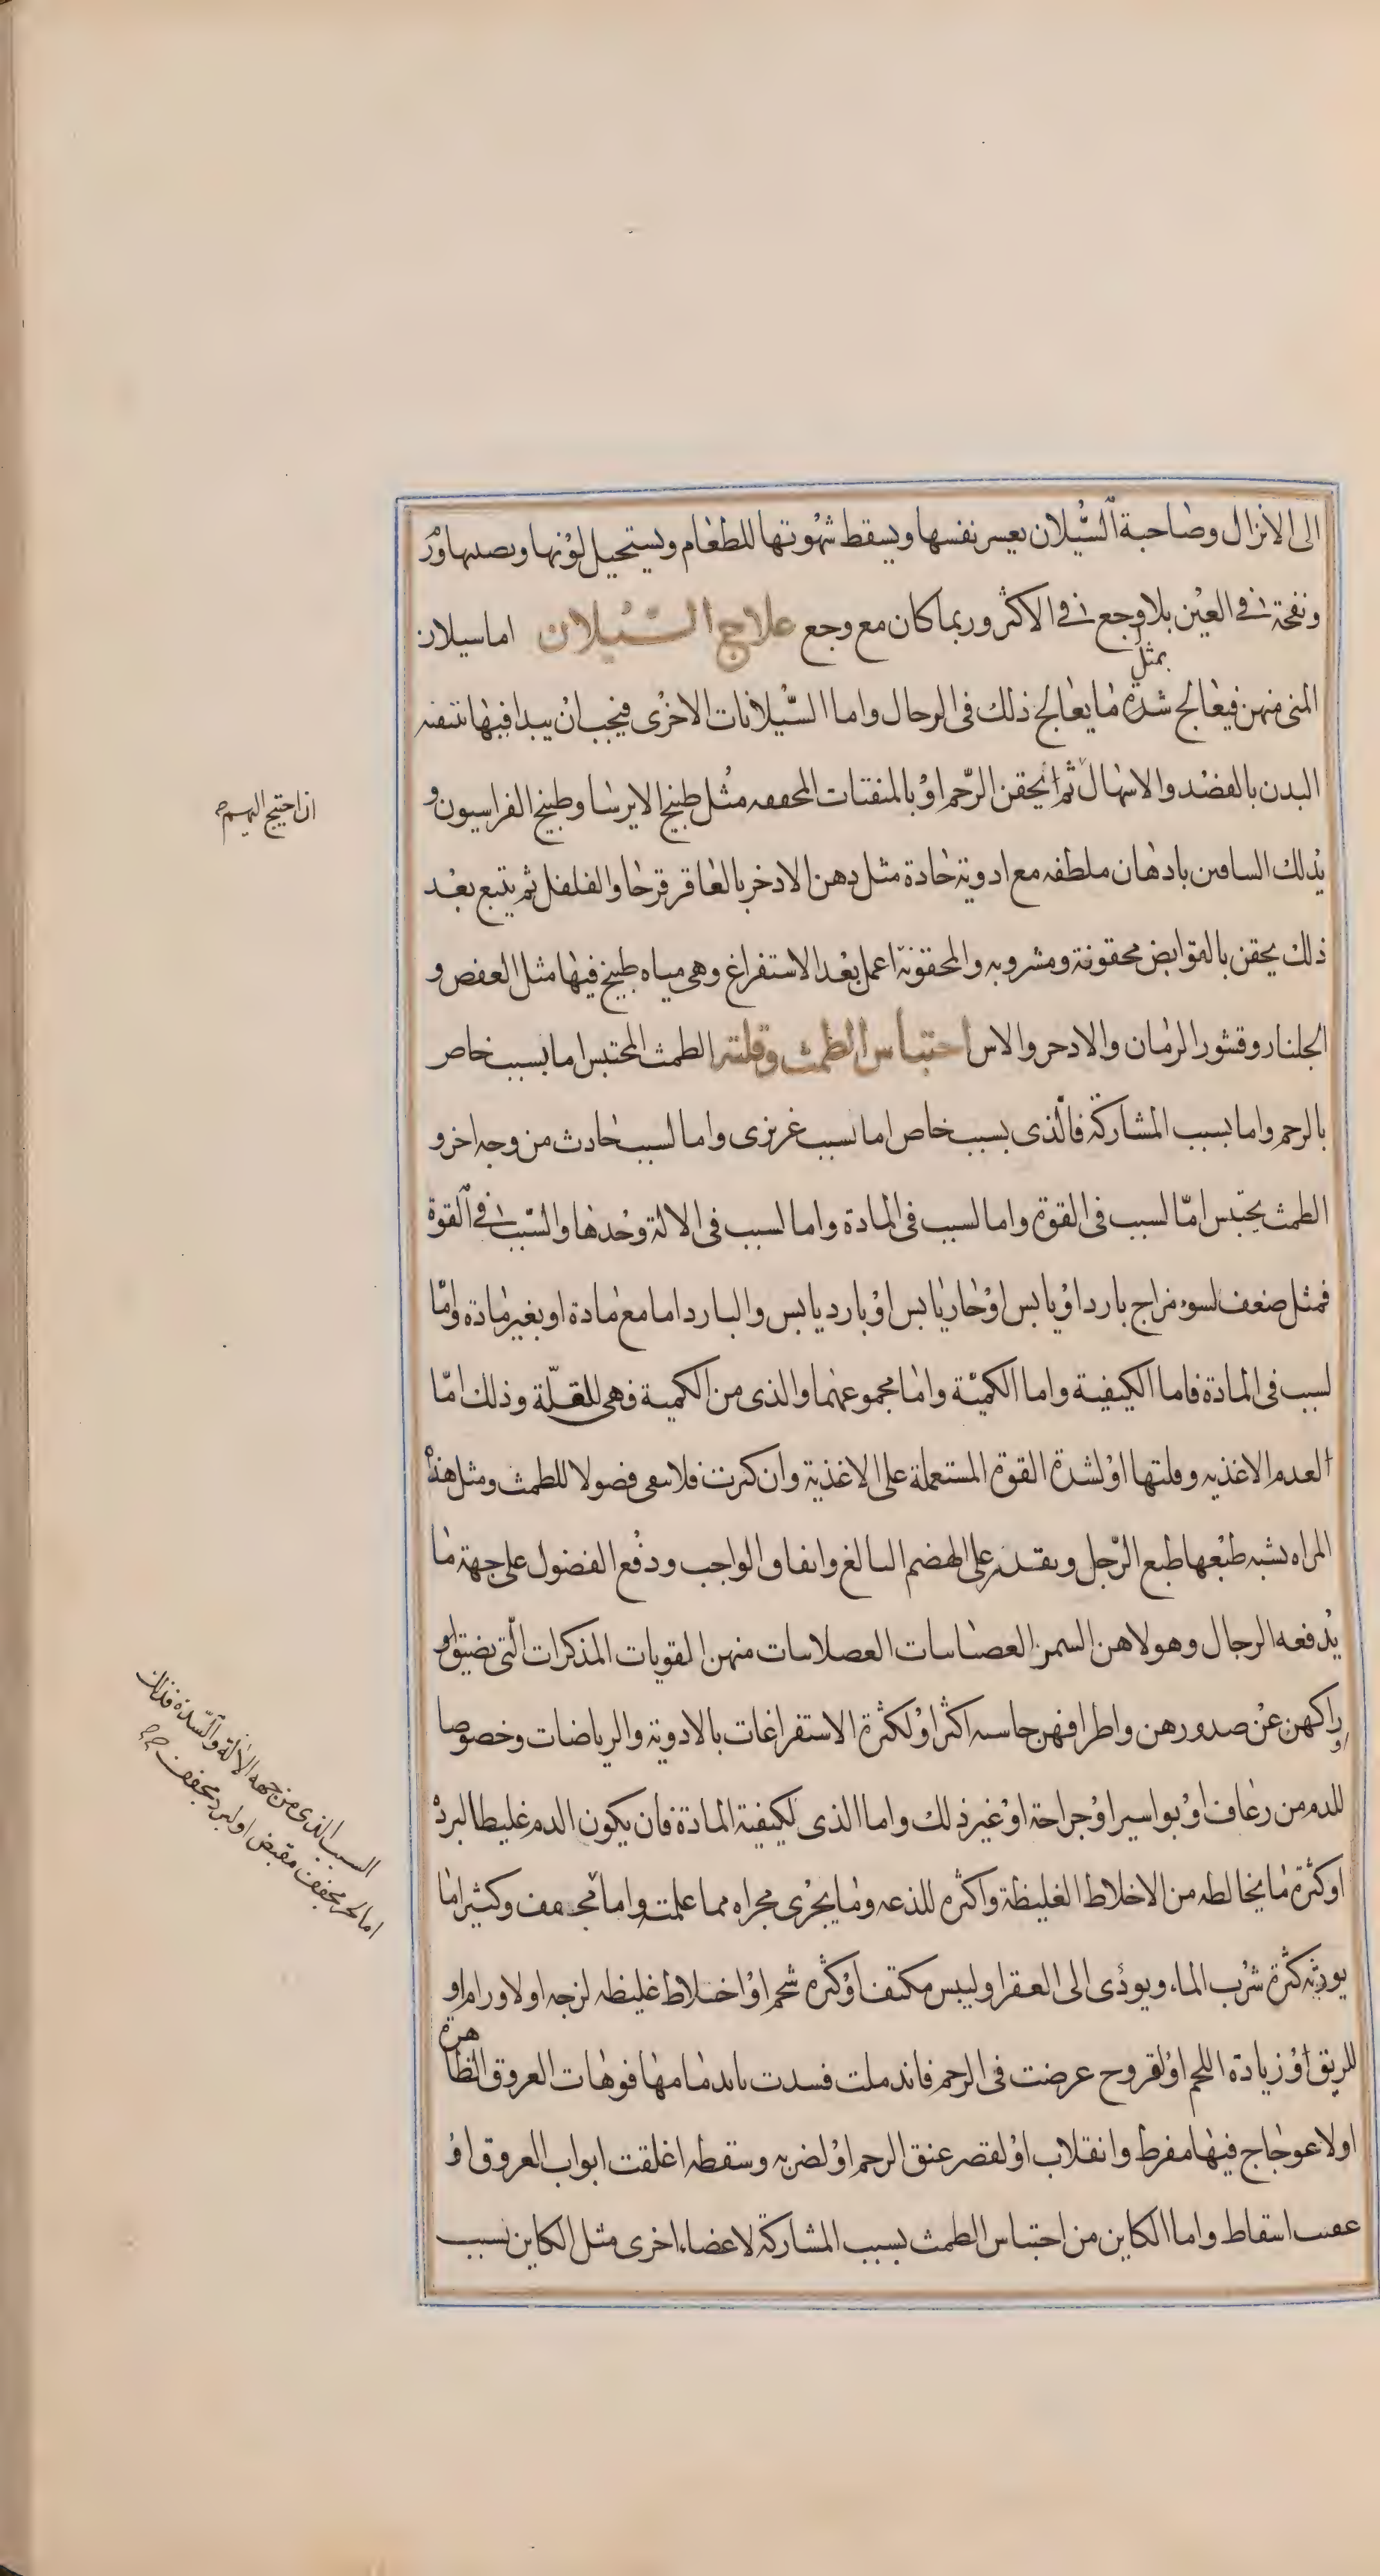 الى الانزال وصاحبة السّيلان يعسر نفسها ويسقط شهوتها للطعام ويستحيل لونها ويصيبها ورم
ونفخة في العين بلا وجع في الاكثر وربما كان مع وجع علاج السّيلان اما سيلان
المنى منهن فيعالج بمثل ما يعالج ذلك فى الرجال واما السّيلانات الاخرى فيجب ان يبدا فيها تنقيه
البدن بالفصد والاسهال ثم يحقن الرّحم او بالمنقيات المجففه مثل طبيخ الايرسا وطبيخ الفراسيون و
ان احتيج اليهم
يدلك الساقين بادهان ملطفه مع ادوية حادة مثل دهن الادخر بالعاقر قرحا والفلفل ثم يتبع بعد
ذلك يحقن بالقوابض محقونة ومشروبه والمحقونة اعمل بعد الاستفراغ وهى مياه طبيخ فيها مثل العفص و
الجلنار وقشور الرمان والادحر والاس احتباس الطمث وقلته الطمث المحتبس اما بسبب خاص
بالرحم واما بسبب المشاركة فالّذى بسبب خاص اما بسبب غريزى واما لسبب حادث من وجه اخر و
الطمث يحتبس امّا لسبب فى القوة واما لسبب فى المادة واما لسبب فى الالة وحدها والسّبب في القوة
فمثل ضعف لسوء مزاج بارد او يابس او حار يابس او بارد يابس والبارد اما مع مادة او بغير مادة وامّا
لسبب فى المادة فاما الكيفية واما الكميّة واما مجموعهما والذى من الكمية فهى للقلّة وذلك امّا
لعدم الاغذيه وقلتها او لشدة القوة المستعملة على الاغذية وان كثرت فلا سقى فضولا للطمث ومثل هذه
المراه يشبه طبعها طبع الرّجل ويقدر على الهضم البالغ وانفاق الواجب ودفع الفضول على جهة ما
يدفعه الرجال وهولاهن السمن العصاسات العصلاسات منهن المقويات المذكرات الّتى يضيق او
راكهن عن صدورهن واطرافهن جاسيه اكثر او لكثرة الاستفراغات بالادوية والرياضات وخصوصا
للدم من رعاف او بواسير او جراحة او غير ذلك واما الذى لكيفية المادة فان يكون الدم غليظا لبرد
السبب الذى من جهه الالة والسّدة فذلك
اما لحر مجفف مقبض او لبرد مجفف
او كثرة ما يخالطه من الاخلاط الغليظة واكثره للذعه وما يجرى مجراه مما علمت واما مجفف وكثير اما
يورثه كثرة شرب الماء ويودى الى العقر او ليبس مكتف او كثره شحم او اخلاط غليظه لزجه او لاورام او
للريق او زيادة اللحم او لقروح عرضت فى الرحم فاندملت فسدت باندمامها فوهات العروق الظاهرة
او لاعوجاج فيها مفرط وانقلاب او لقصر عنق الرحم او لضربه وسقطه اغلقت ابواب العروق او
عقيب اسقاط واما الكاين من احتباس الطمث بسبب المشاركة لاعضاء اخرى مثل الكاين بسبب